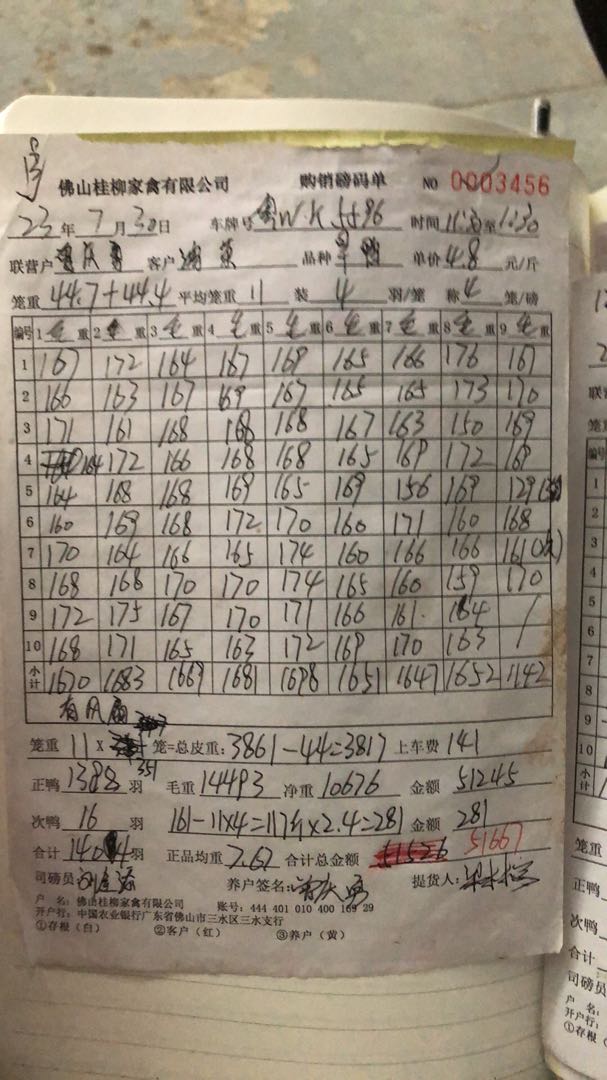 佛山桂柳家禽有限公司 购销磅码单 NO 0003456
23年7月30日 车牌号 粤W·K5596 时间 11:30至1:30
联营户 客户 品种 旱鸭 单价 4.8 元/斤
笼重 44.7+44.4 平均笼重 11 装 4 羽/笼 称 4 笼/磅
编号 1 毛重 2 毛重 3 毛重 4 毛重 5 毛重 6 毛重 7 毛重 8 毛重 9 毛重
1 167 172 164 167 169 165 166 176 167
2 166 163 167 169 167 165 165 173 170
3 171 161 168 168 168 167 163 150 169
4 164 172 166 168 168 165 169 172 169
5 164 168 168 169 165 169 156 169 129
6 160 169 168 172 170 160 171 160 168
7 170 164 166 165 174 160 166 166 161(次)
8 168 168 170 170 174 165 160 159 170
9 172 175 167 170 171 166 161 164 /
10 168 171 165 163 172 169 170 163 /
小计 1670 1683 1669 1681 1698 1651 1647 1652 1142
笼重 11 × 351 笼=总皮重: 3861-44=3817 上车费 141
正鸭 1388 羽 毛重 14493 净重 10676 金额 51245
次鸭 16 羽 161-11×4=117斤×2.4=281 金额 281
合计 1404 羽 正品均重 7.67 合计总金额 51526 51667
司磅员 养户签名: 提货人:
户 名: 佛山桂柳家禽有限公司 账号: 444 401 010 400 169 29
开户行: 中国农业银行广东省佛山市三水区三水支行
①存根(白) ②客户(红) ③养户(黄)